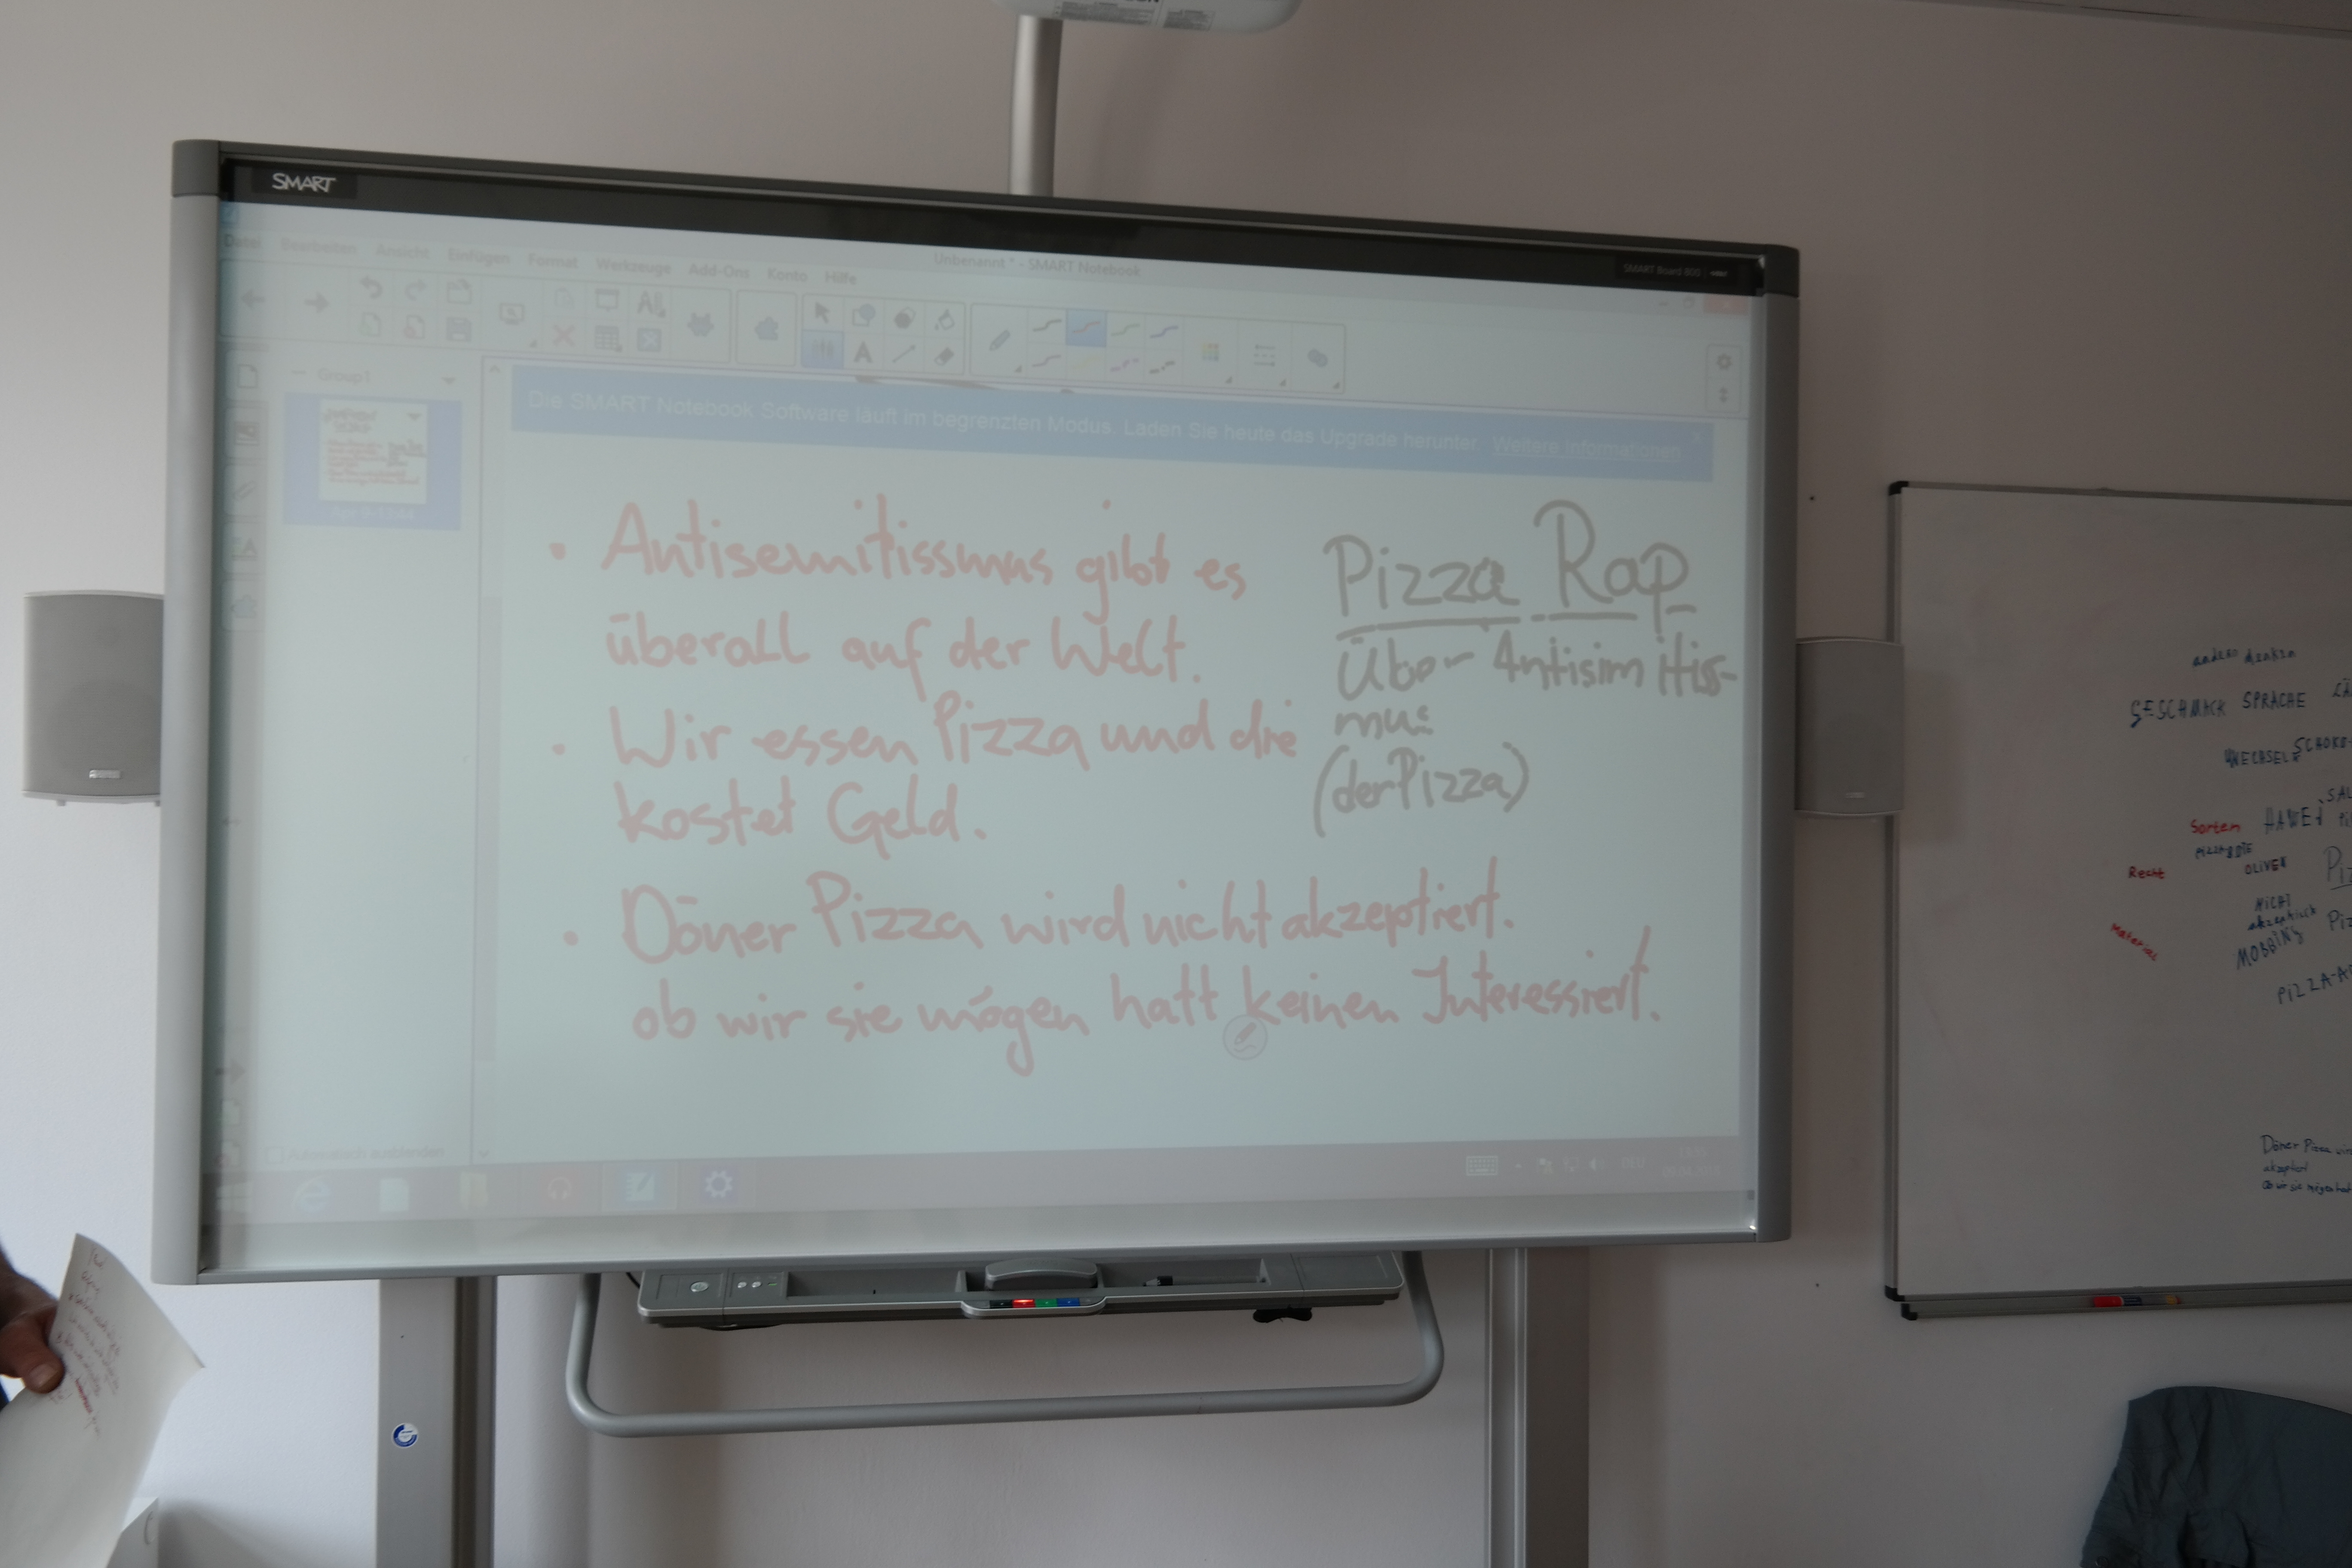 SMART
SMART Board 800
Unbenannt * - SMART Notebook
Datei Bearbeiten Ansicht Einfügen Format Werkzeuge Add-Ons Konto Hilfe
Group1
Die SMART Notebook Software läuft im begrenzten Modus. Laden Sie heute das Upgrade herunter. Weitere Informationen
• Antisemitissmus gibt es
überall auf der Welt.
• Wir essen Pizza und die
kostet Geld.
• Döner Pizza wird nicht akzeptiert.
ob wir sie mögen hatt keinen Interessiert.
Pizza Rap
Über Antisimitiss-
mus
(der Pizza)
Automatisch ausblenden
DEU
anders denken
GESCHMACK SPRACHE
WECHSEL SCHOKO-
Sorten HAWEI
OLIVEN
Recht
NICHT
Material
MOBBING
PIZZA-
Döner Pizza
akzeptiert
Ob wir sie mögen hat